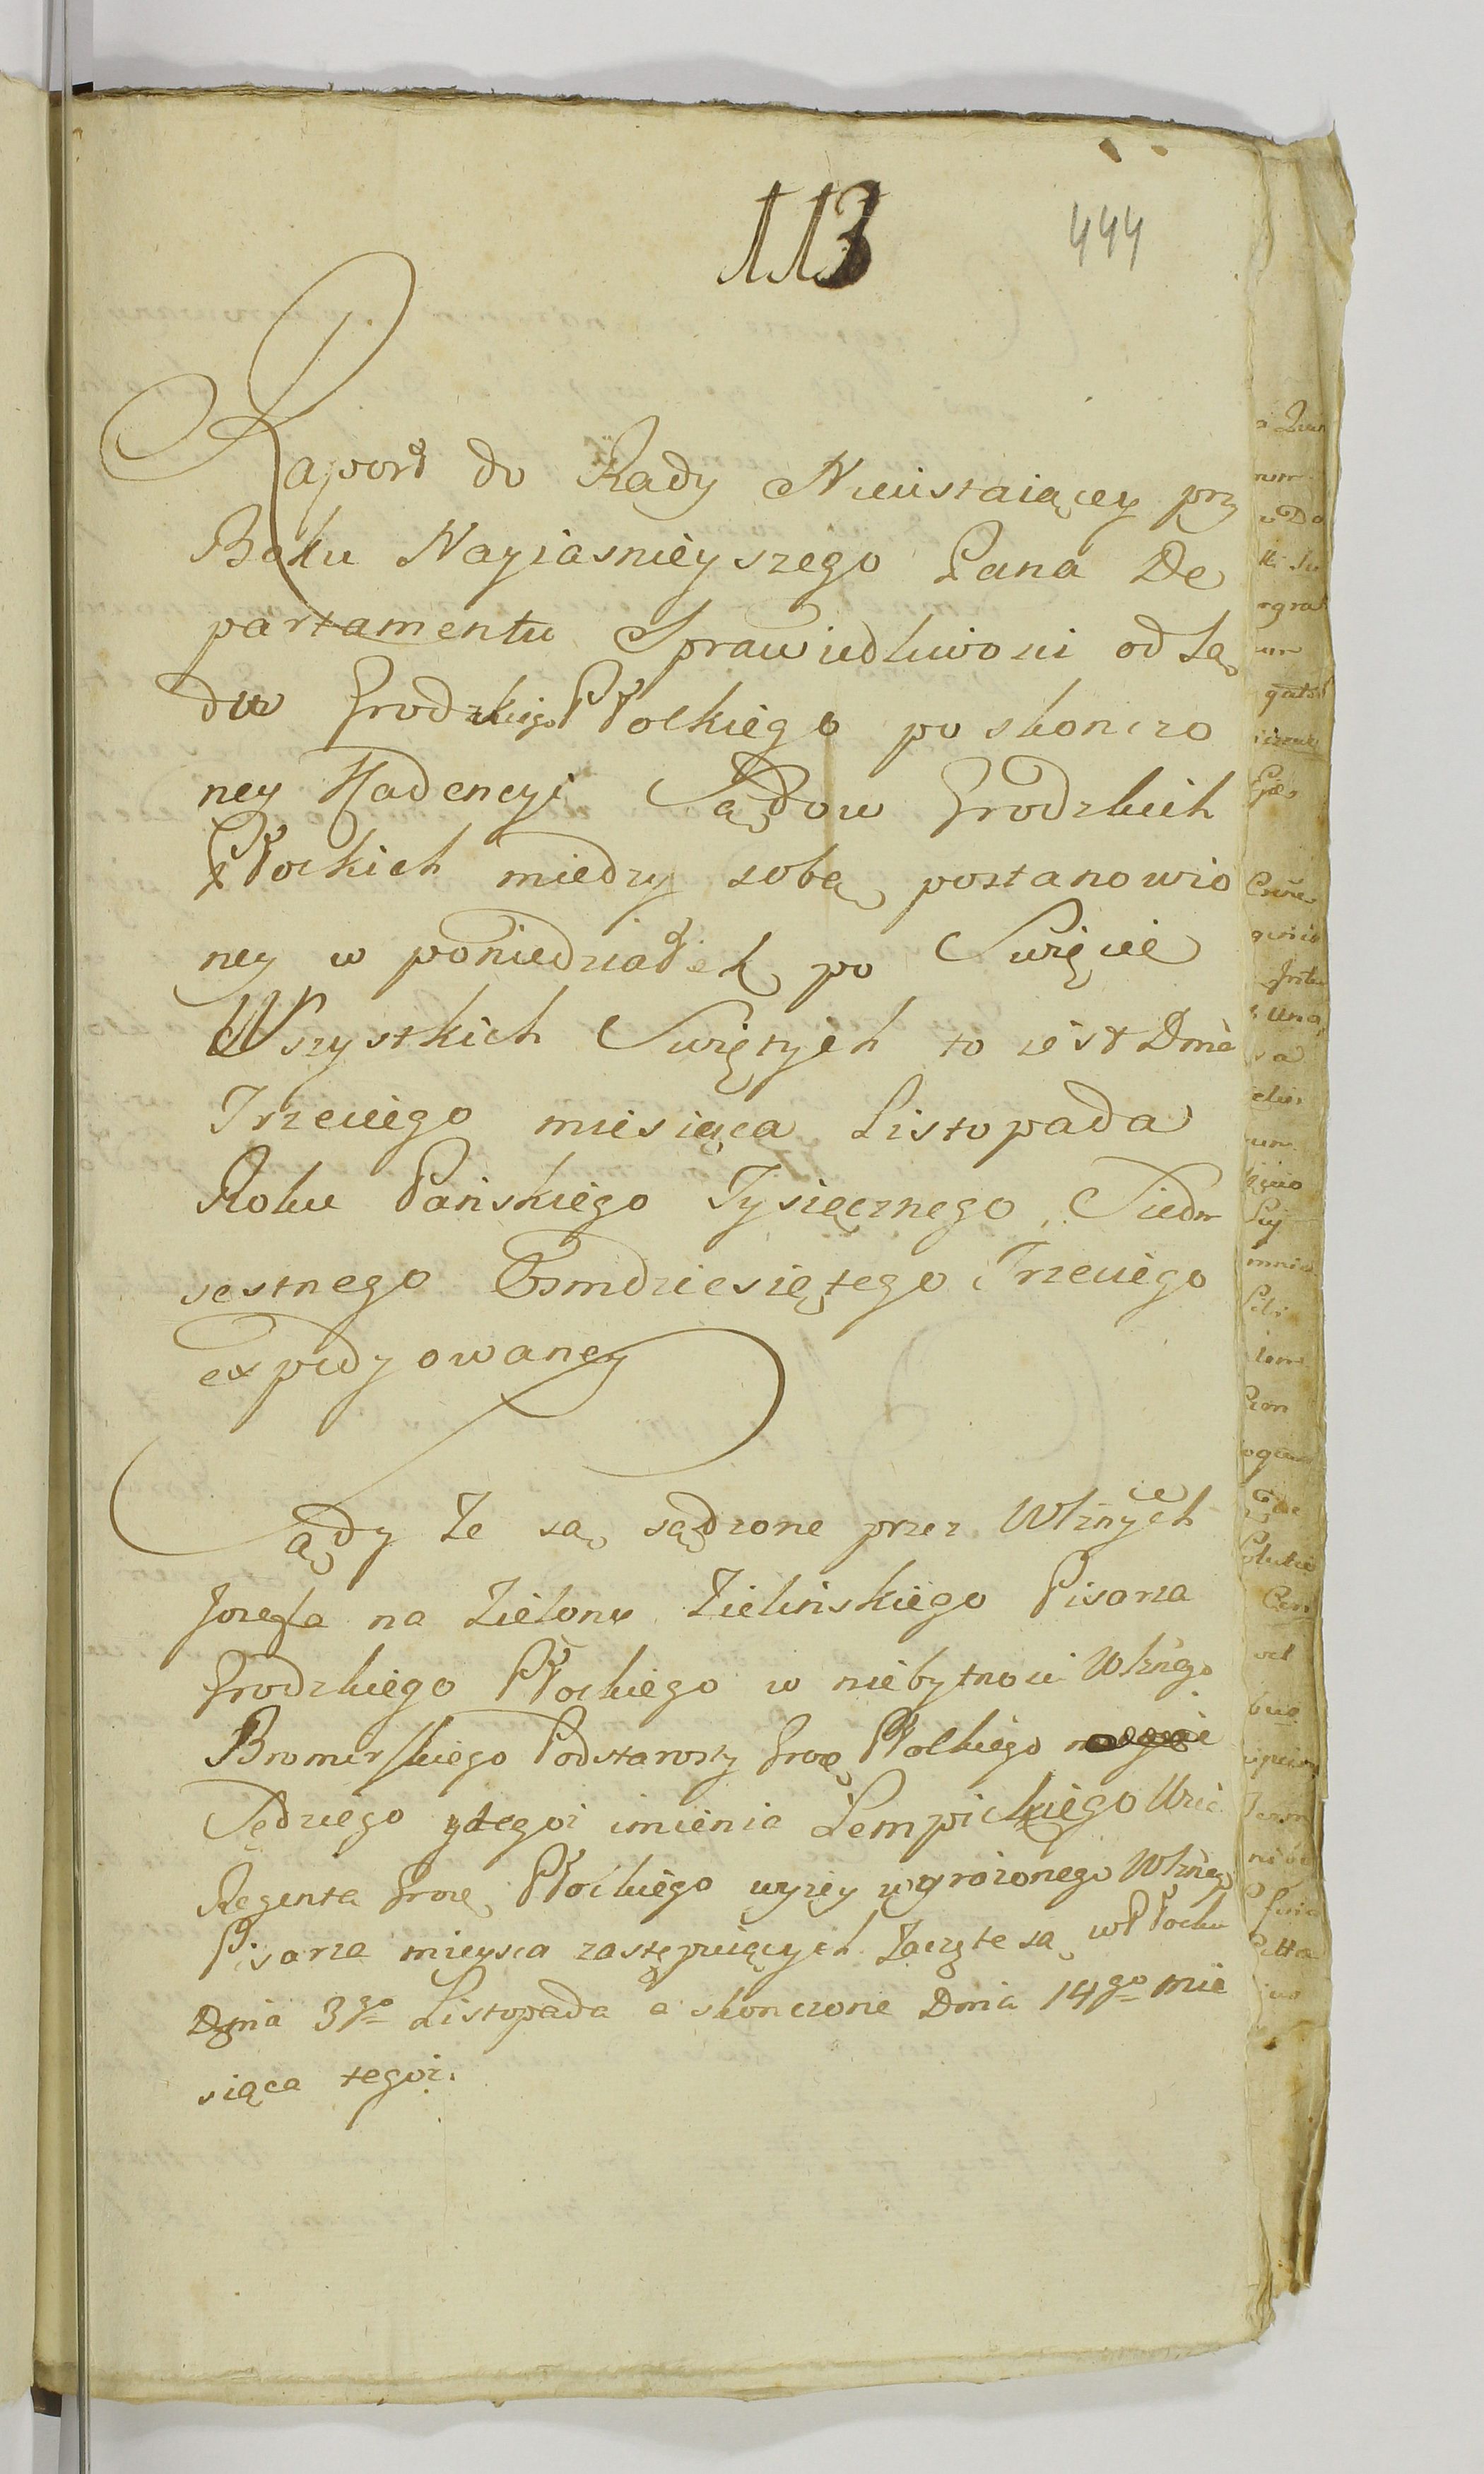 113 444
Raport do Rady Nieustaiącey przy
Boku Nayiasnieyszego Pana De
partamentu Sprawiedliwosci od Są
du Grodzkiego Płockiego po skonczo
ney Kadencyi Sądow Grodzkich
Płockich miedzy sobą postanowio
ney w poniedziałek po Swięcie
Wszystkich Swiętych to iest Dnia
Trzeciego miesiąca Listopada
Roku Pańskiego Tysiącznego Siedm
sestnego Osmdziesiątego Trzeciego
expedyowaney
Sądy Te są sądzone przez Wlżnych
Jozefa na Zielony Zielińskiego Pisarza
Grodzkiego Płockiego w niebytnosci Wlżnego
Bromirskiego Podstarosty Grog Płockiego
Sędziego ytegoż imienia Lempickiego
Regenta Płockiego wyzey wyrożonego Wlżnego
Pisarza mieysca zastępuiących Zaczęte są w Płocku
Dnia 3go Listopada a skonczone Dnia 14go mie
siąca tegoż.